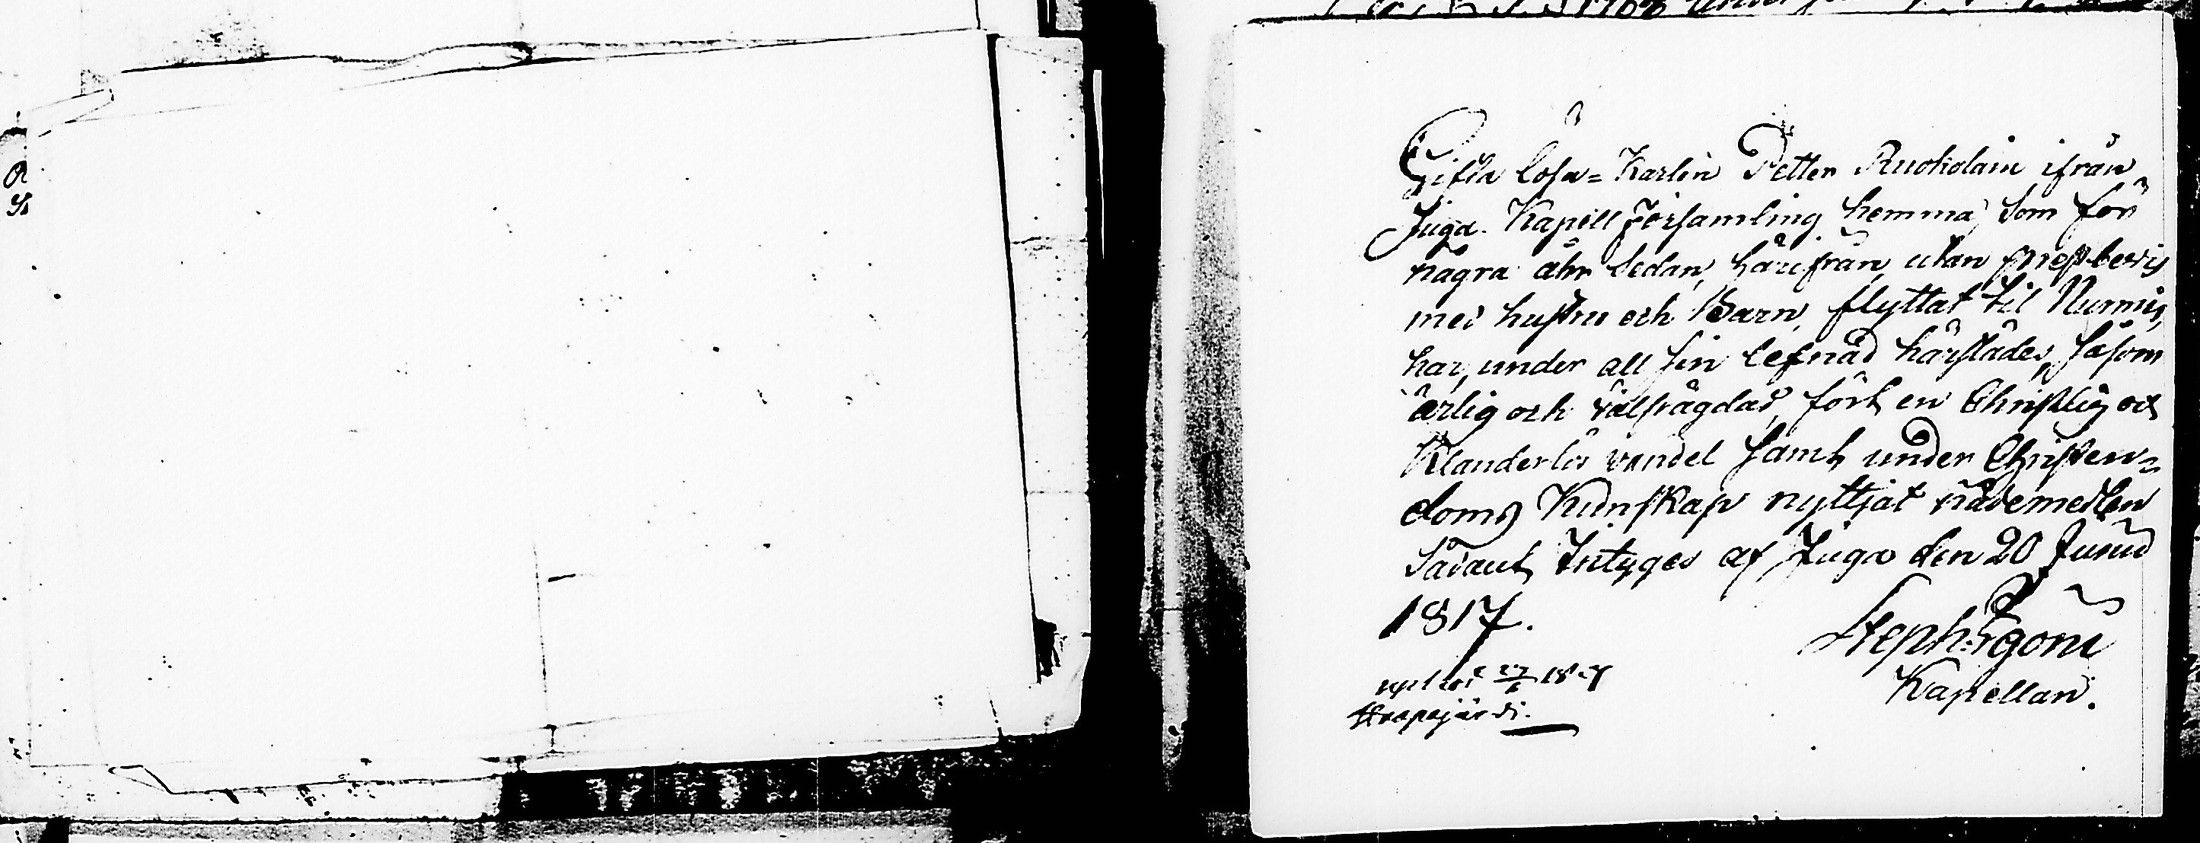 Gifta Lösa=Karlen Petter Ruokolain ifrån
Juga Kapell Församling hemma, som för
några åhr sedan, härifrån, utan prestbevis
med hustru och Barn, flyttat til Nurmis,
har, under all sin lefnad härstädes, såsom
ärlig och välfrägdad, fört en Christelig och
Klanderlös vandel samt under Christen=
doms Kunskap nyttjat nådemedlen
Sådant Intyges af Juga den 20 Junii
1817.
Steph: Fgoni
Kapellan.